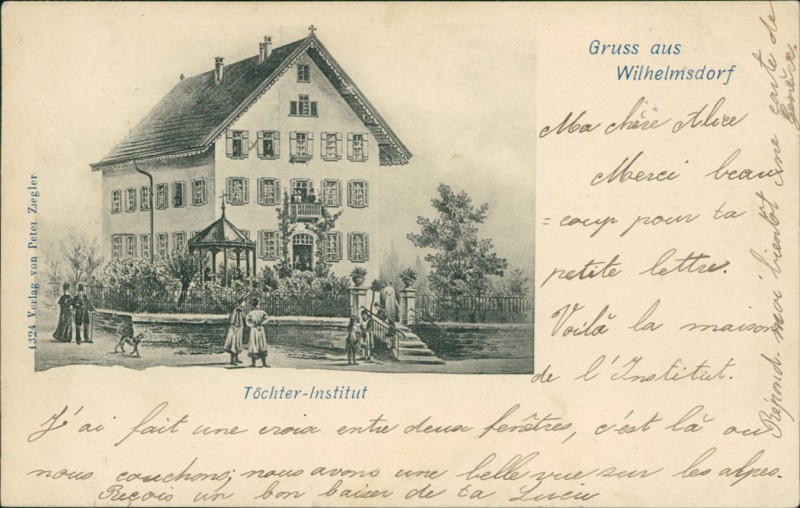 Gruss aus
Wilhelmsdorf
Ma chère Alice
Merci beau
=coup pour ta
petite lettre.
Voilà la maison
de l'Institut.
Töchter-Institut
J'ai fait une croix entre deux fenêtres, c'est là où
nous couchons; nous avons une belle vue sur les alpes.
Reçois un bon baiser de ta
Répond-moi bientôt une carte de
Genève.
1324 Verlag von Peter Ziegler